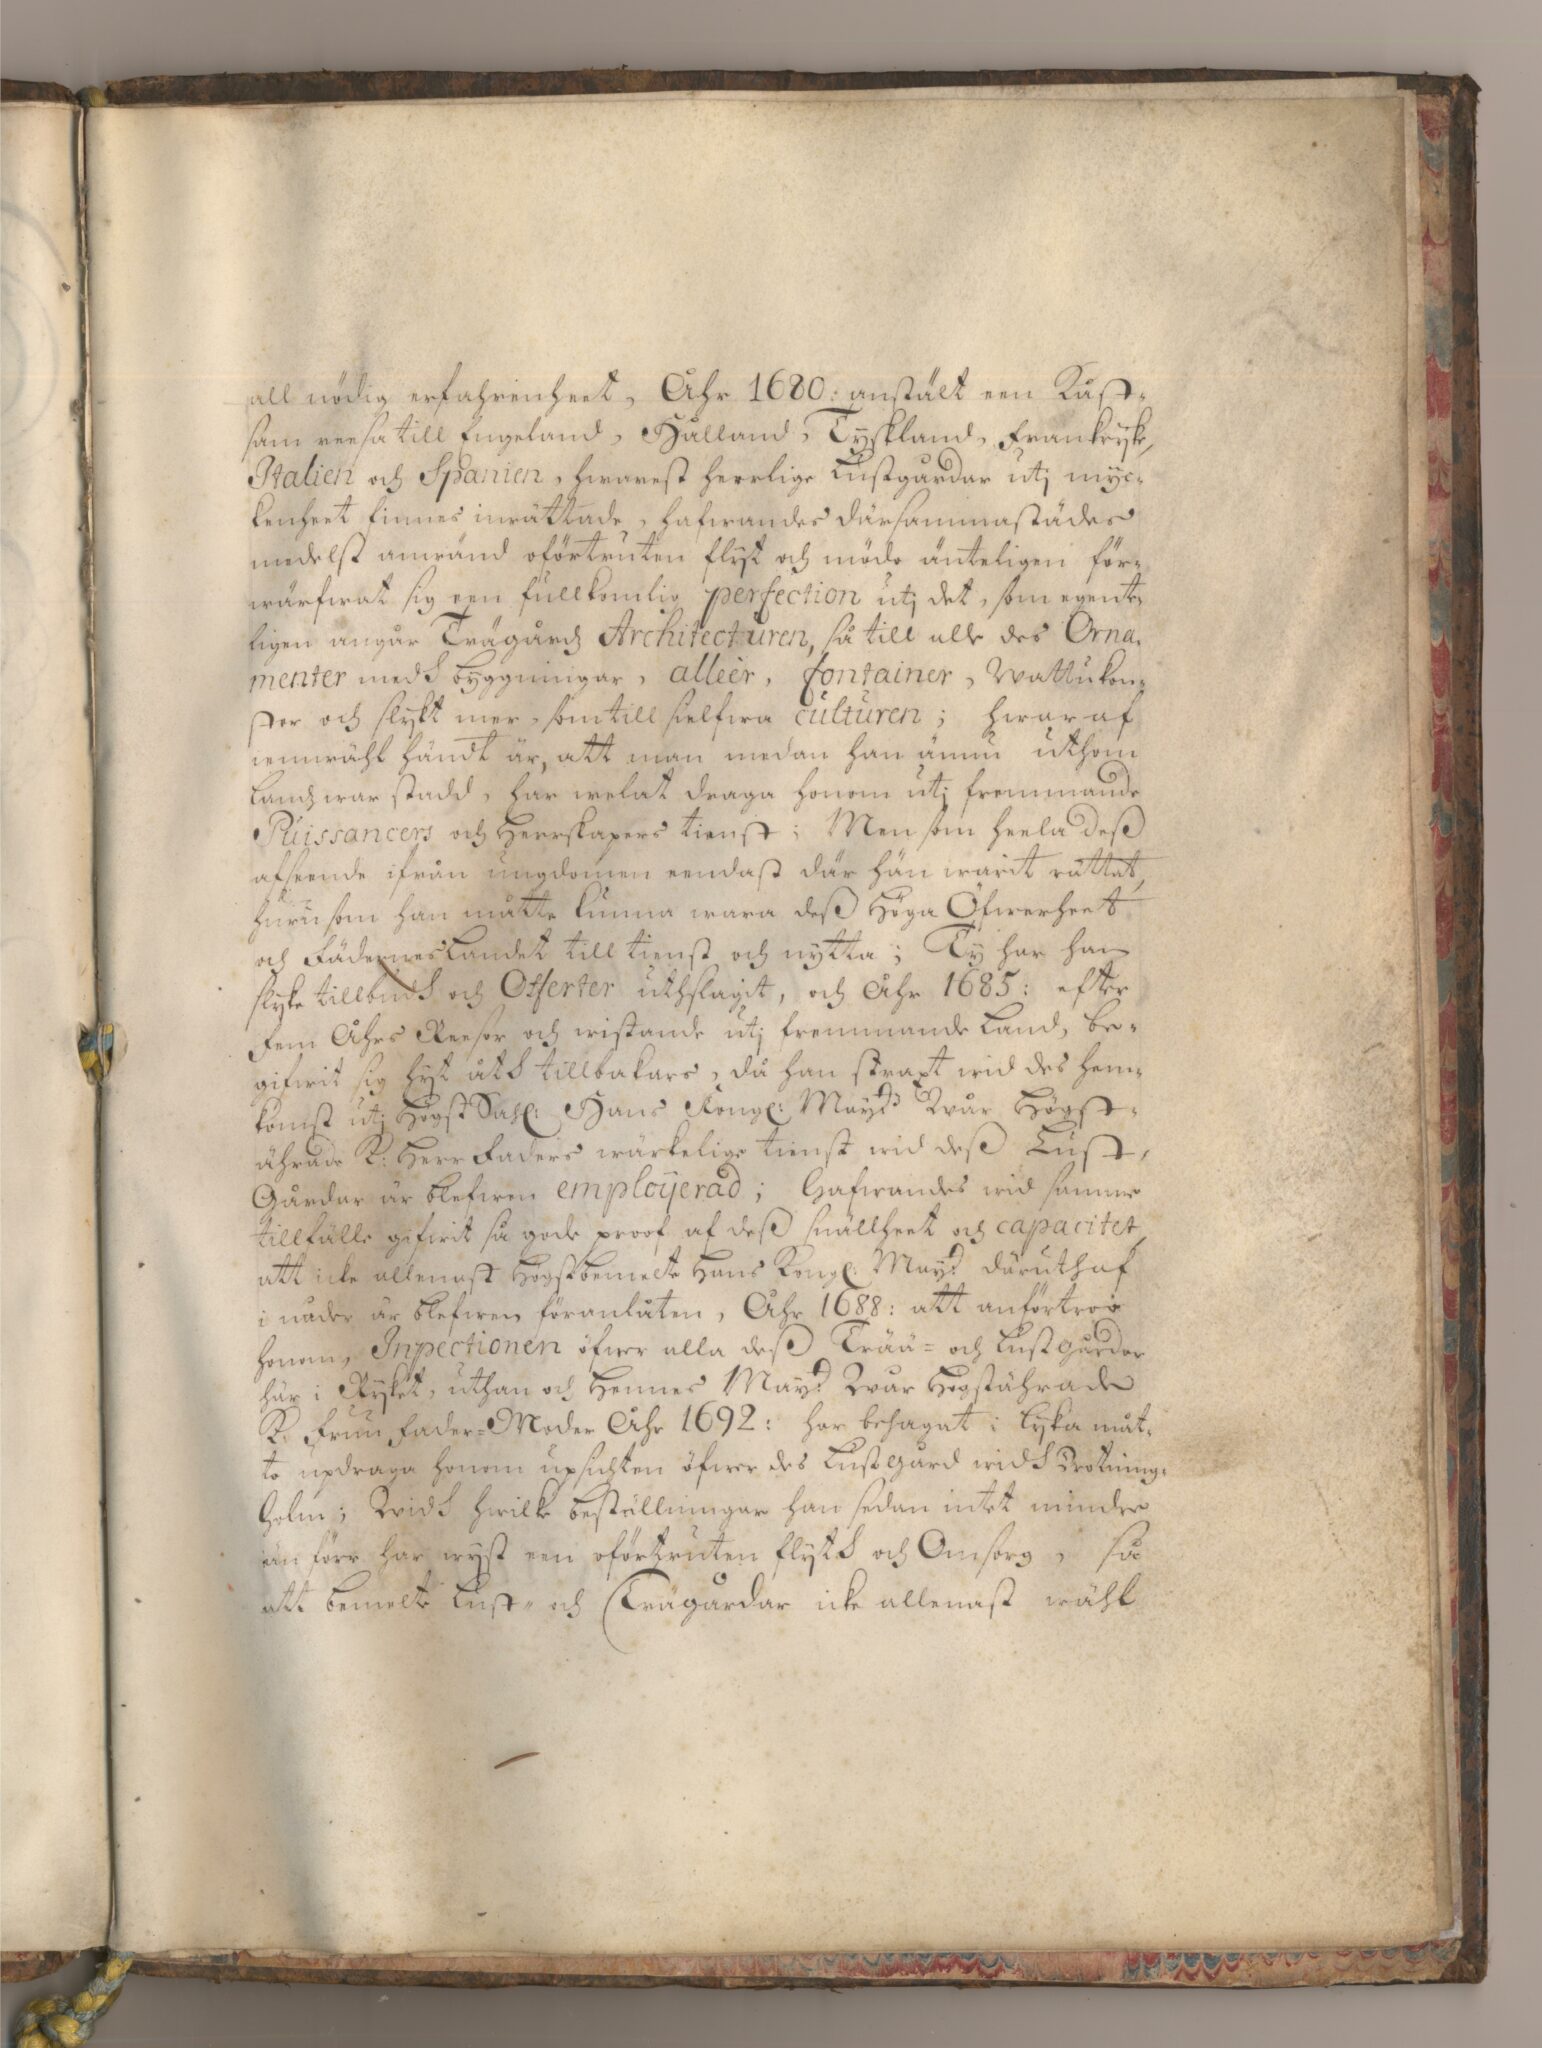 all nödig erfahrenheet, Åhr 1680: anstält een Kåst-
sam reesa till Engeland, Hålland, Tyskland, Frankryke,
Italien och Spanien, hwarest herrlige Lustgårdar utj myc-
kenheet finnes inrättade, hafwandes därsammastädes
medelst anwänd oförtruten flyt och mödo änteligen för-
wärfwat sig een fullkomlig perfection utj det, som egente-
ligen angår Trägårdz Architecturen, så till alle des Orna-
menter medh byggningar, alleèr, fontainer, Wattukon-
ster och slykt mer, som till sielfwa culturen; hwaraf
iemwähl händt är, att man medan han ännu uthom
Landz war stadd, har welat draga honom utj fremmande
Puissancers och Herrskapers tienst; Men som heela deß
afseende ifrån ungdomen eendast där hän warit rättat,
huru som han måtte kunna wara deß Höga Öfwerheet
och Fädernes Landet till tienst och nytta; Ty har han
slyke tillbudh och Offerter uthslagit, och Åhr 1685: efter
fem Åhrs Reesor och wistande utj fremmande Land, be-
gifwit sig hyt åth tillbakars, då han straxt wid des hem-
komst utj Högst Sahl: Hans Kongl: Mayt:s Wår Högst-
ährade K: Herr Faders wärkelige tienst wid deß Lust-
Gårdar är blefwen employerad; Hafwandes wid samme
tillfälle gifwit så gode proof af deß snällheet och capacitet,
att icke allenast Högstbemelte Hans Kongl: Mayt: däruthaf
i nåder är blefwen föranlåten, Åhr 1688: att anförtroo
honom, Inpectionen öfwer alla deß Trää- och Lustgårdar
här i Ryket, uthan och Hennes Mayt: Wår Högstährade
K. Fruu Fader-Moder Åhr 1692: har behagat i lyka måt-
to updraga honom upsichten öfwer des Lustgård widh Drotning-
holm; Widh hwilke beställningar han sedan intet mindre
än förr har wyst een oförtruten flyth och Omsorg, så
att bemelte Lust- och Trägårdar icke allenast wähl